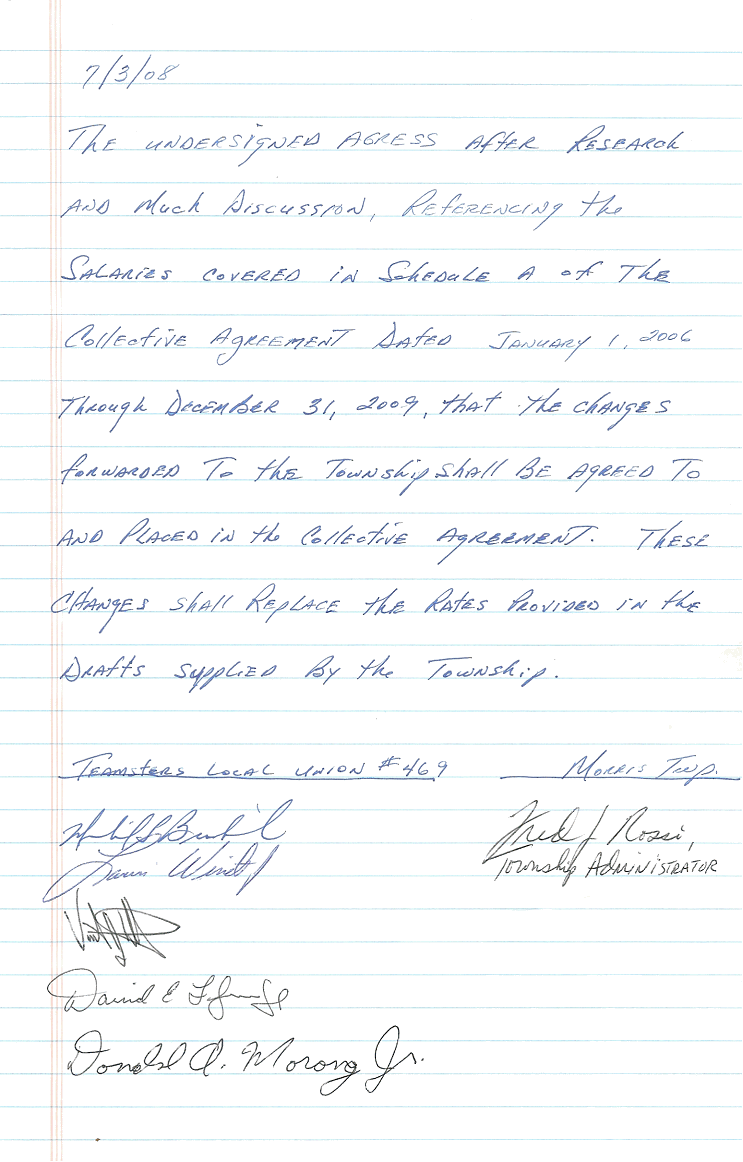 7/3/08
The undersigned agress after Research
and Much Discussion, Referencing the
Salaries covered in Schedule A of The
Collective Agreement Dated January 1, 2006
Through December 31, 2009, that the changes
forwarded To the Township shall Be Agreed To
and Placed in the Collective Agreement. These
Changes shall Replace the Rates Provided in the
Drafts supplied By the Township.
Teamsters Local Union #469 Morris Twp.
Fred J Rossi,
Township Administrator
David E
Donald A. Morong Jr.